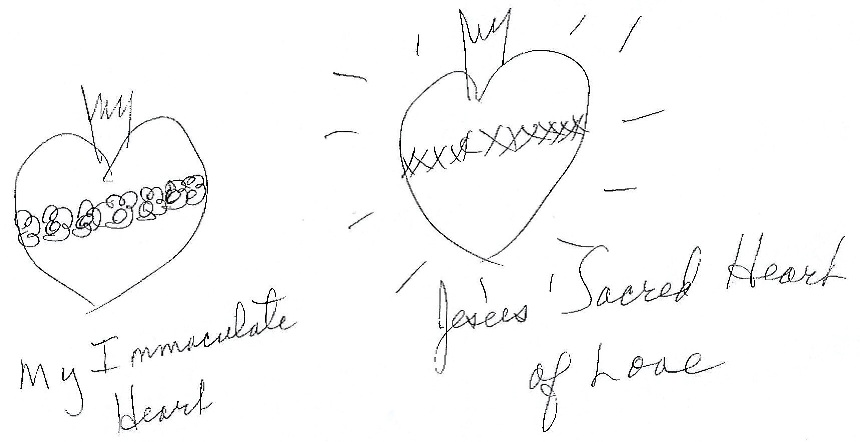 My Immaculate
Heart
Jesus' Sacred Heart
of Love